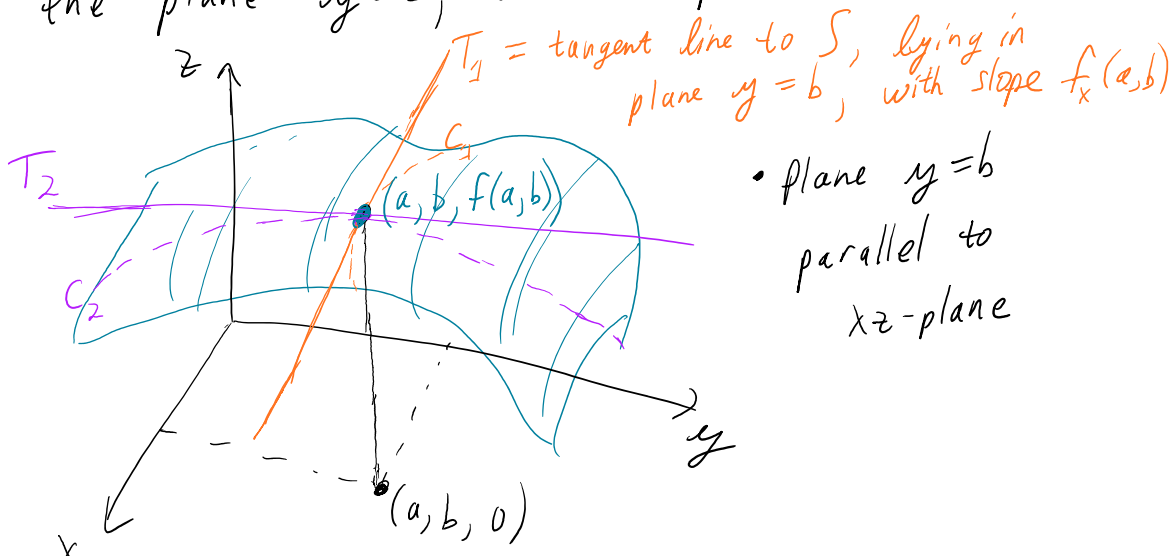 the plane
z
T₁ = tangent line to S, lying in
plane y = b, with slope fₓ(a,b)
C₁
T₂
(a, b, f(a,b))
• plane y = b
parallel to
xz-plane
C₂
y
(a, b, 0)
x